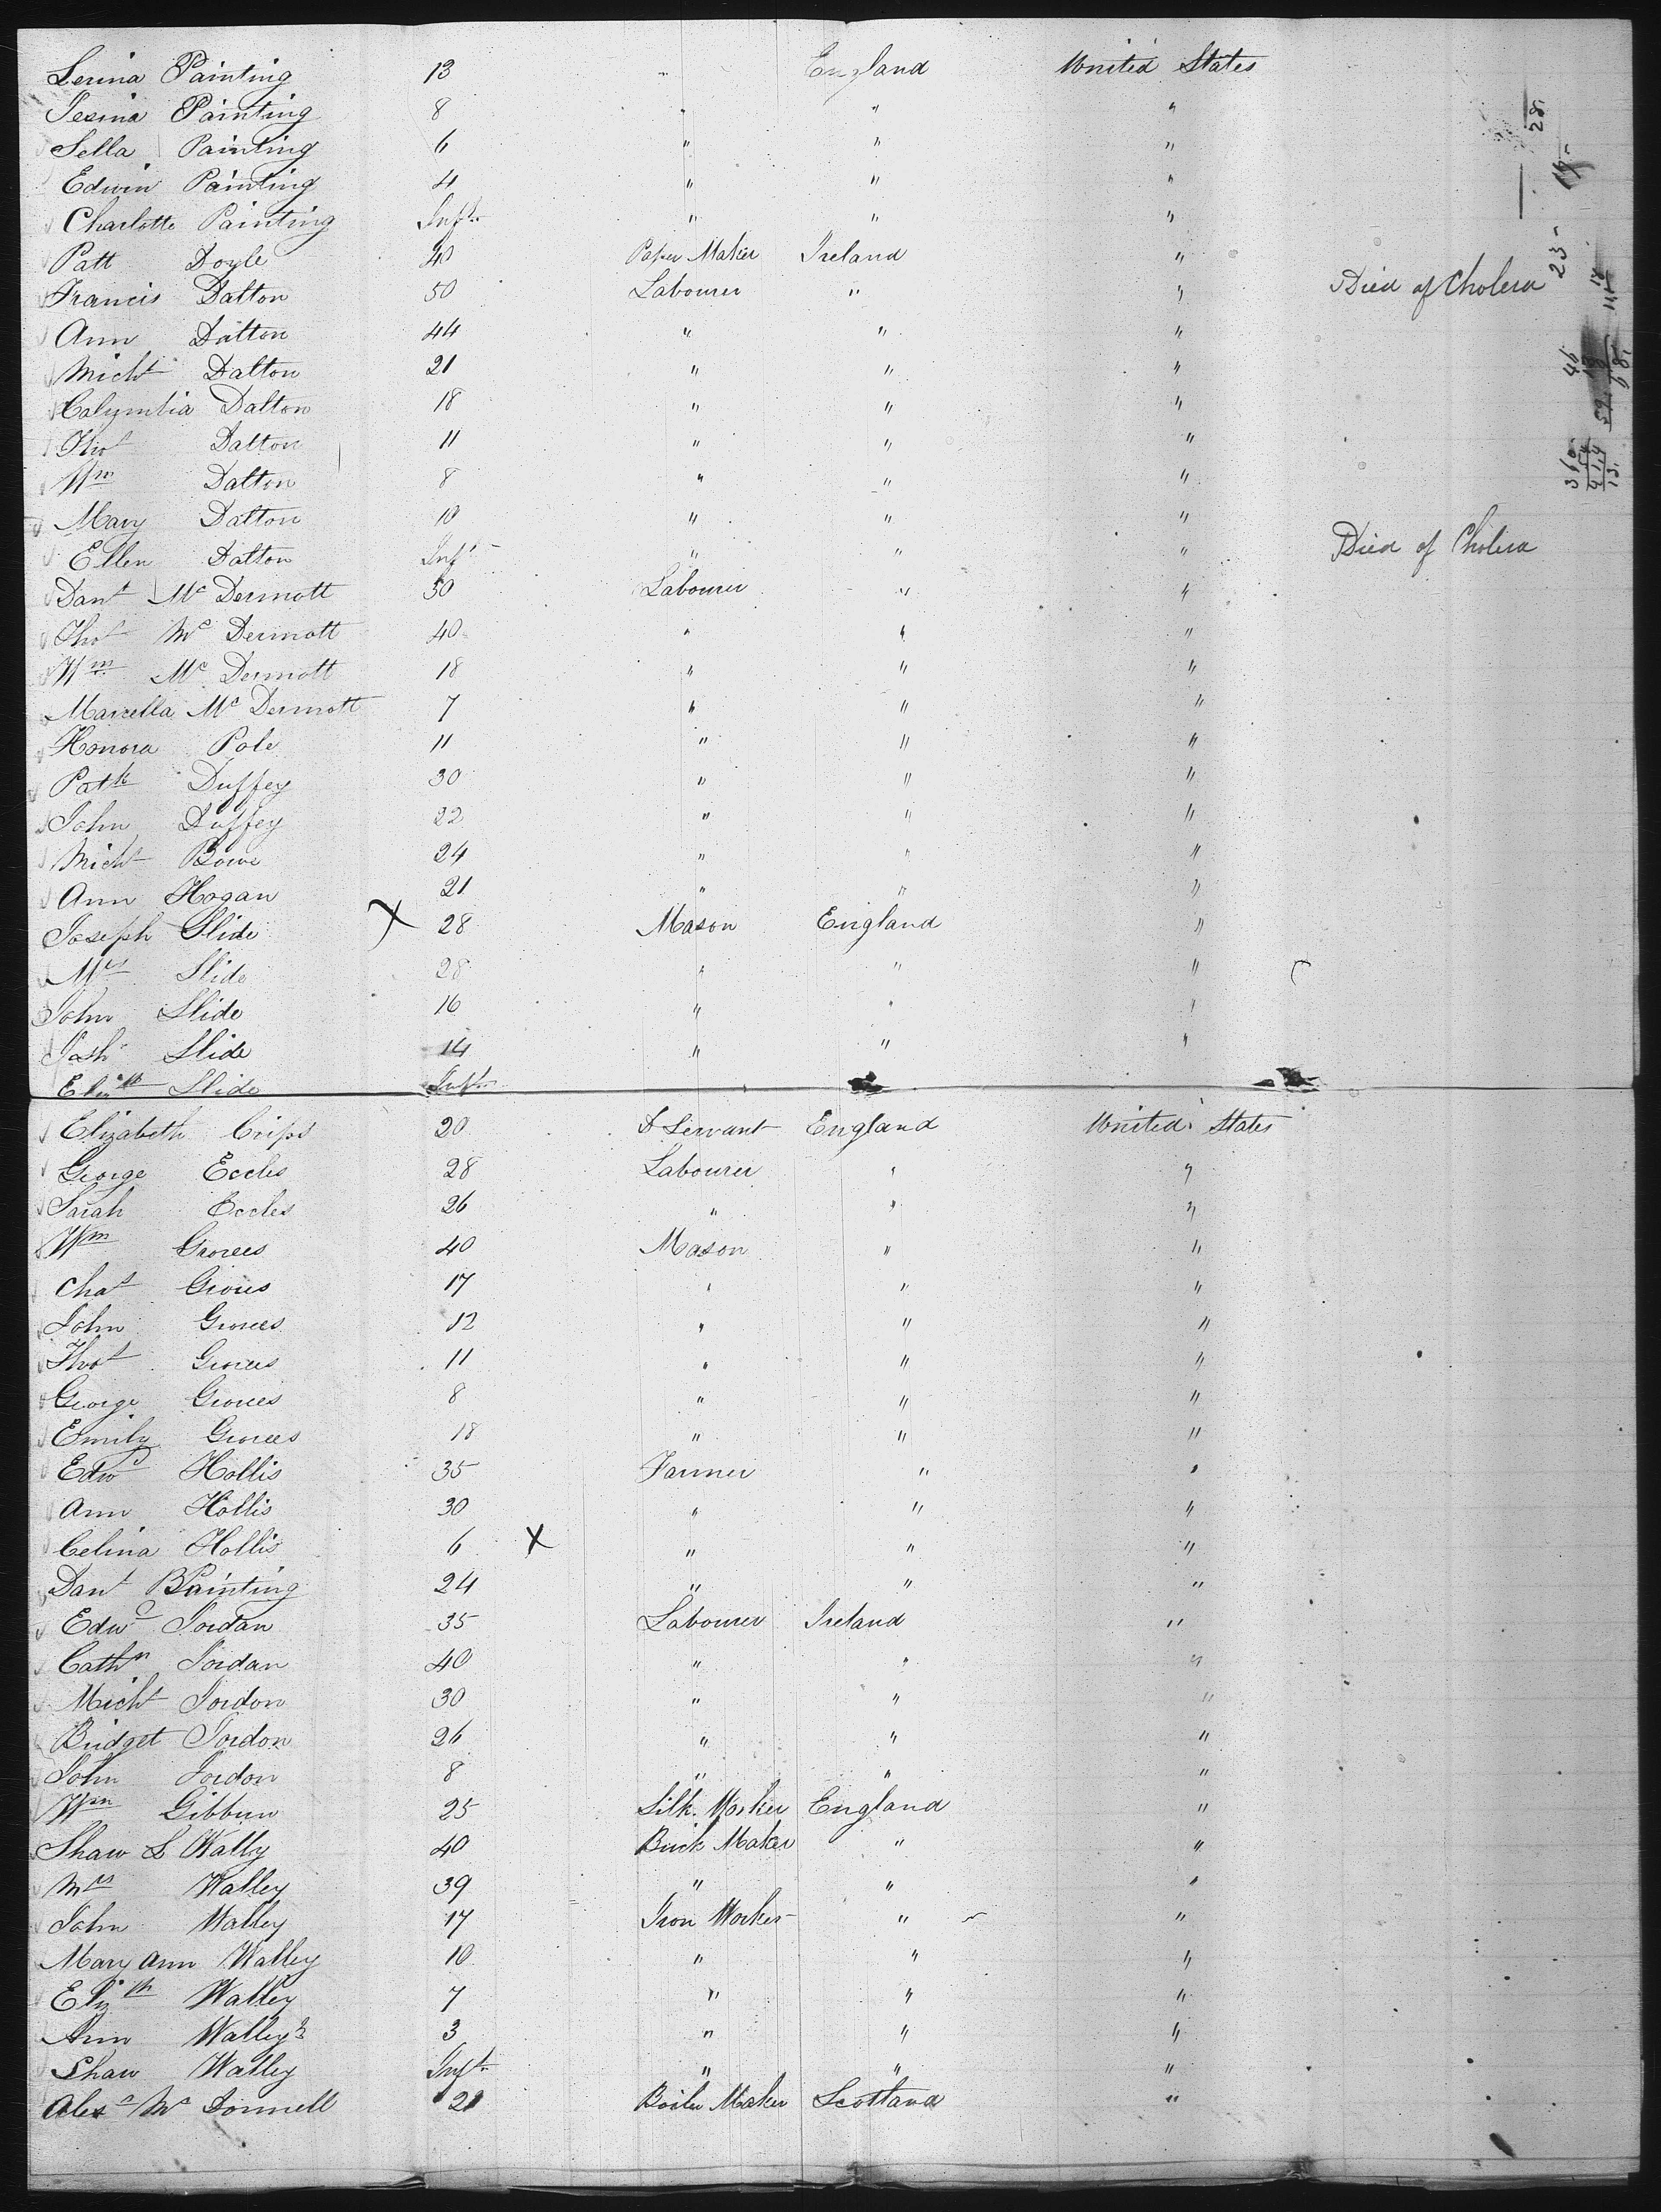 Serina Painting 13 " England United States
Jesina Painting 8 " " "
Sella Painting 6 " " "
Edwin Painting 4 " " "
Charlotte Painting Inft " " "
Patt Doyle 40 Paper Maker Ireland "
Francis Dalton 50 Labourer " " Died of Cholera
Ann Dalton 44 " " "
Michl Dalton 21 " " "
Calymtia Dalton 18 " " "
Thos Dalton 11 " " "
Wm Dalton 8 " " "
Mary Dalton 10 " " "
Ellen Dalton Inft " " " Died of Cholera
Danl Mc Dermott 50 Labourer " "
Thos Mc Dermott 40 " " "
Wm Mc Dermott 18 " " "
Marcella Mc Dermott 7 " " "
Honora Pole 11 " " "
Patk Duffey 30 " " "
John Duffey 22 " " "
Michl Bowe 24 " " "
Ann Hogan 21 " " "
Joseph Slide X 28 Mason England "
Mrs Slide 28 " " "
John Slide 16 " " "
Josh Slide 14 " " "
Elizth Slide Inft
Elizabeth Crips 20 D Servant England United States
George Eccles 28 Labourer " "
Sarah Eccles 26 " " "
Wm Groves 40 Mason " "
Chas Groves 17 " " "
John Groves 12 " " "
Thos Groves 11 " " "
George Groves 8 " " "
Emily Groves 18 " " "
Edwd Hollis 35 Farmer " "
Ann Hollis 30 " " "
Celina Hollis 6 X " " "
Danl B Painting 24 " " "
Edwd Jordan 35 Labourer Ireland "
Cathn Jordan 40 " " "
Michl Jordon 30 " " "
Bridget Jordon 26 " " "
John Jordon 8 " " "
Wm Gibbun 25 Silk Worker England "
Shaw L Wally 40 Brick Maker " "
Mrs Walley 39 " " "
John Walley 17 Iron Worker " "
Mary Ann Walley 10 " " "
Elizth Walley 7 " " "
Ann Walley 3 " " "
Shaw Walley Inft " " "
Alexr Mc Donnell 21 Boiler Maker Scotland "